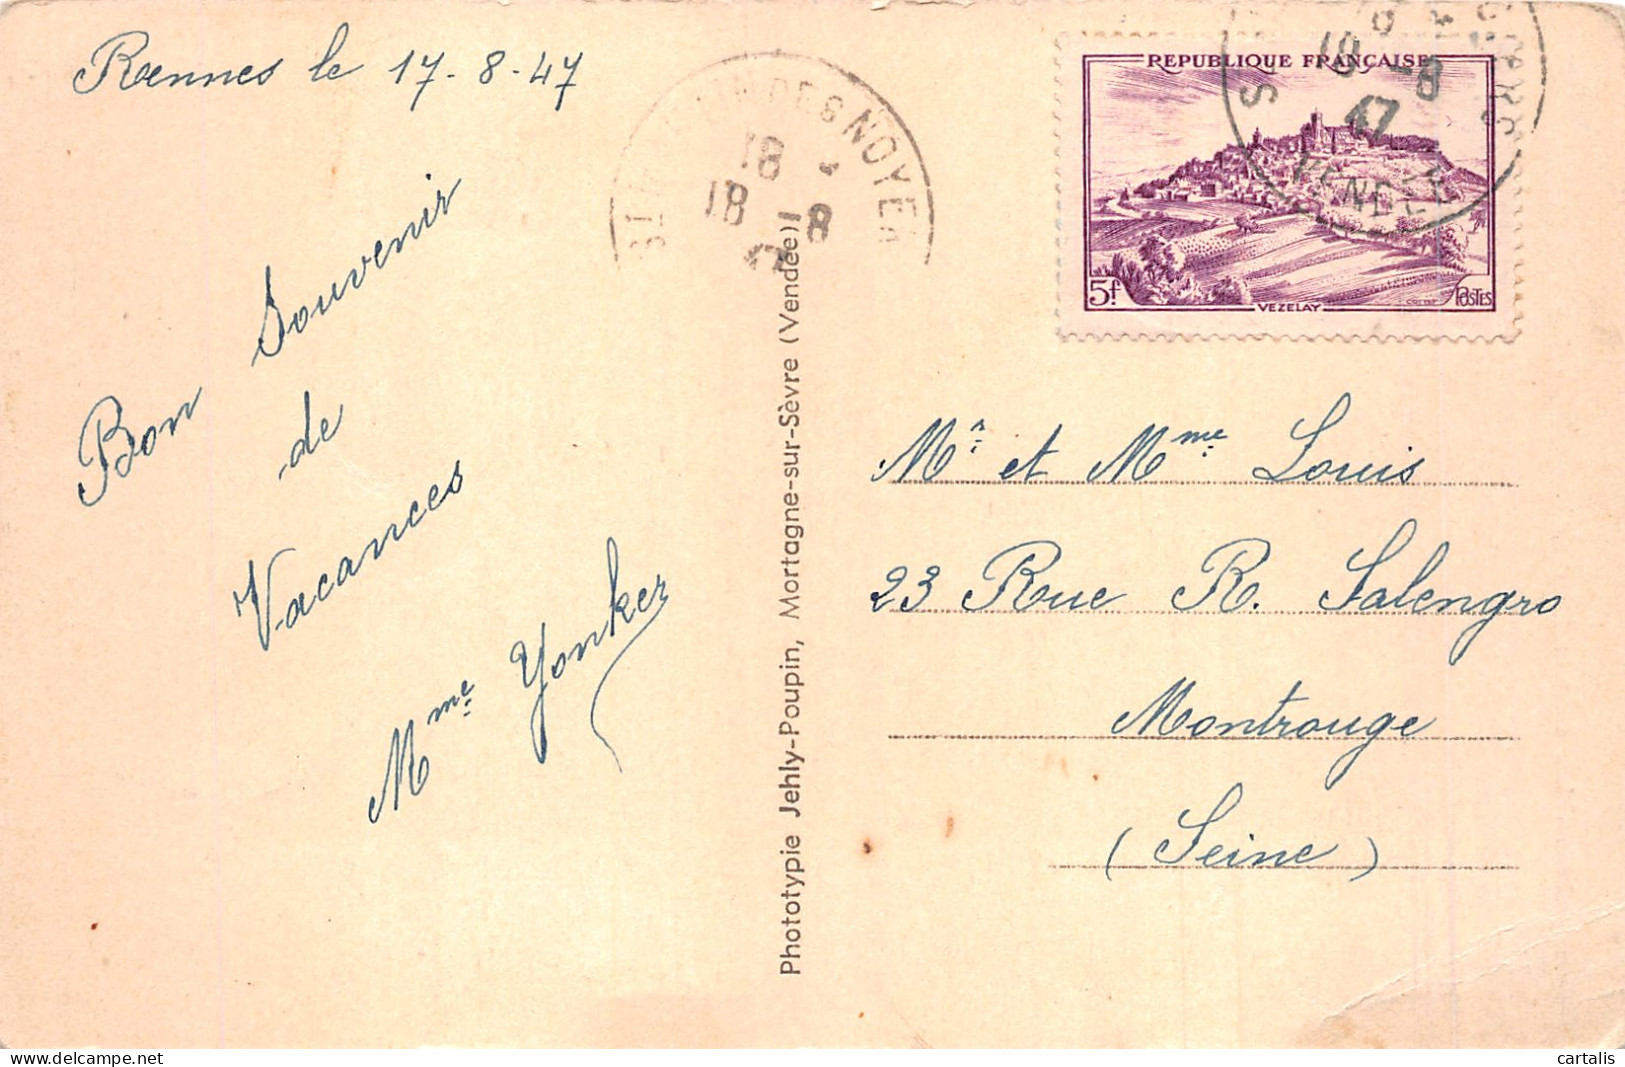 Rennes le 17-8-47
Bon Souvenir
de
Vacances
Mme Yonker
DES NOYER
18
18 -8
Phototypie Jehly-Poupin, Mortagne-sur-Sèvre (Vendée)
REPUBLIQUE FRANÇAISE
5f
VEZELAY
POSTES
18 -8
47
VENDÉE
Mr et Mme Louis
23 Rue R. Salengro
Montrouge
(Seine)
cartalis